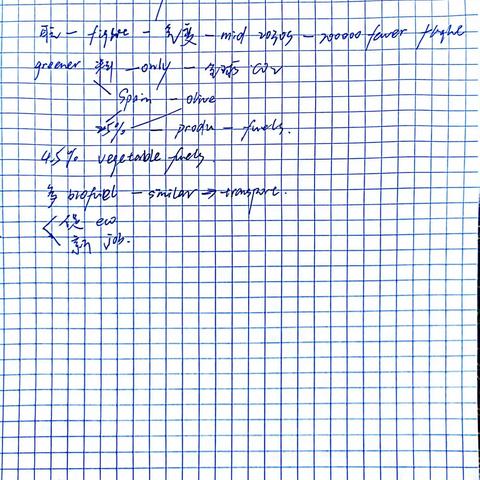 取 - figure - 气变 - mid 2030s - 200000 fewer flight
greener - only - CO2
Spain - olive
25% - produ - fuels.
4.5% vegetable fuels.
多 biofuel - similar → transport.
促 eco
新 job.